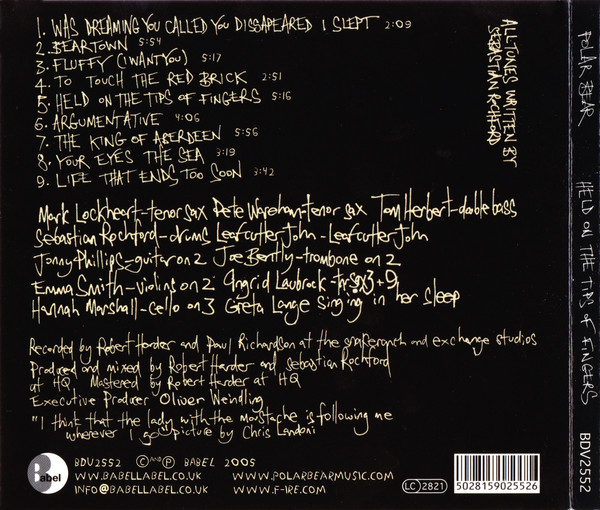 1. WAS DREAMING YOU CALLED YOU DISSAPEARED I SLEPT 2:09
2. BEARTOWN 5:54
3. FLUFFY (I WANT YOU) 5:17
4. TO TOUCH THE RED BRICK 2:51
5. HELD ON THE TIPS OF FINGERS 5:16
6. ARGUMENTATIVE 4:06
7. THE KING OF ABERDEEN 5:56
8. YOUR EYES THE SEA 3:19
9. LIFE THAT ENDS TOO SOON 3:42
ALL TUNES WRITTEN BY
SEBASTIAN ROCHFORD
Mark Lockheart-tenor sax Pete Wareham-tenor sax Tom Herbert-double bass
Sebastian Rochford-drums Leafcutter John-Leafcutter John
Jonny Phillips-guitar on 2 Joe Bently-trombone on 2
Emma Smith-violins on 2; Ingrid Laubrock-tnr sax 3+9
Hannah Marshall-cello on 3 Greta Lange Singing in her sleep
Recorded by Robert Harder and Paul Richardson at the snakeranch and exchange studios
Produced and mixed by Robert Harder and Sebastian Rochford
at HQ Mastered by Robert Harder at HQ
Executive Producer Oliver Weindling
"I think that the lady with the moustache is following me
wherever I go" picture by Chris Landoni
Babel
BDV2552 © AND ℗ BABEL 2005
WWW.BABELLABEL.CO.UK WWW.POLARBEARMUSIC.COM
INFO@BABELLABEL.CO.UK WWW.F-IRE.COM
LC 2821
5028159025526
POLAR BEAR HELD ON THE TIPS OF FINGERS BDV2552